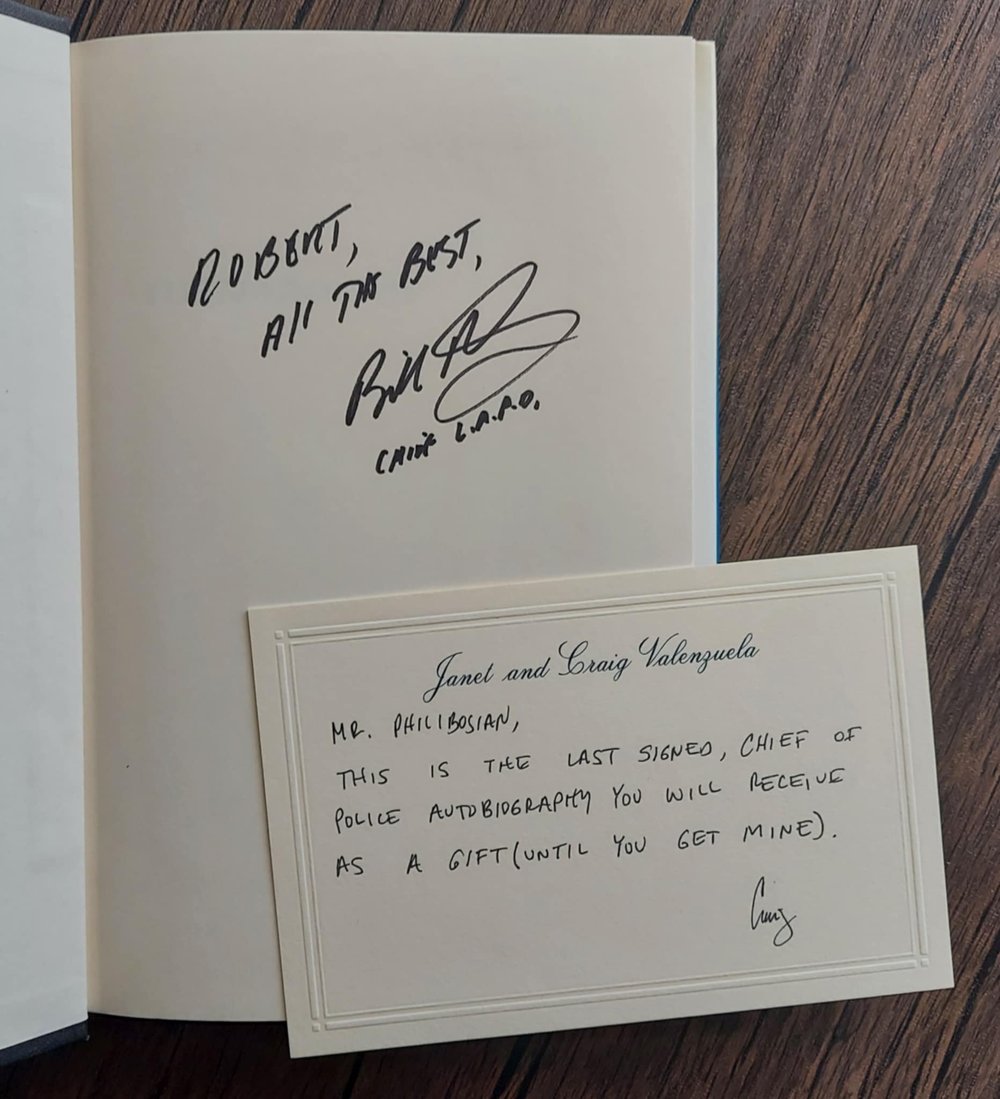 ROBERT,
All THE BEST,
Bill
CHIEF L.A.P.D.
Janet and Craig Valenzuela
MR. PHILIBOSIAN,
THIS IS THE LAST SIGNED, CHIEF OF
POLICE AUTOBIOGRAPHY YOU WILL RECEIVE
AS A GIFT (UNTIL YOU GET MINE).
Craig